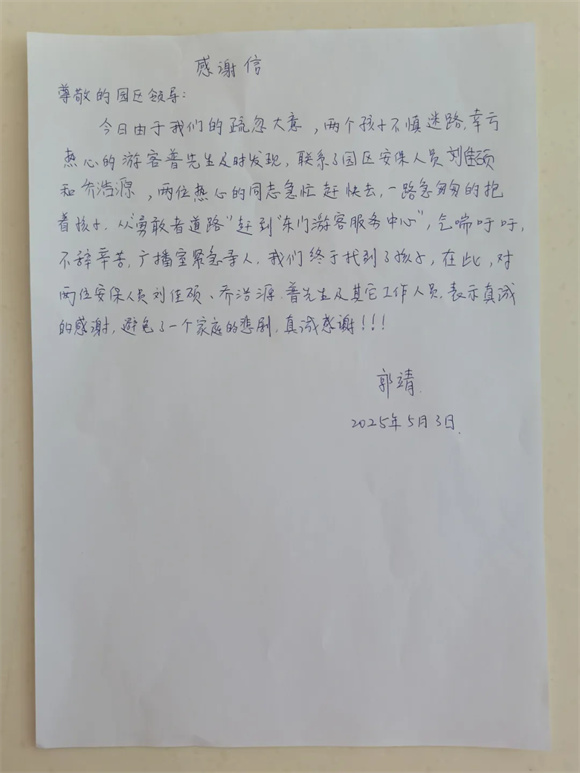 感谢信
尊敬的园区领导:
今日由于我们的疏忽大意,两个孩子不慎迷路.幸亏
热心的游客普先生及时发现,联系了园区安保人员刘佳硕
和乔浩源,两位热心的同志急忙赶快去,一路急匆匆的抱
着孩子.从“勇敢者道路”赶到“东门游客服务中心”,气喘吁吁,
不辞辛苦.广播室紧急寻人.我们终于找到了孩子,在此,对
两位安保人员刘佳硕、乔浩源.普先生及其它工作人员.表示真诚
的感谢,避免了一个家庭的悲剧.真诚感谢!!!
郭靖.
2025年5月3日.